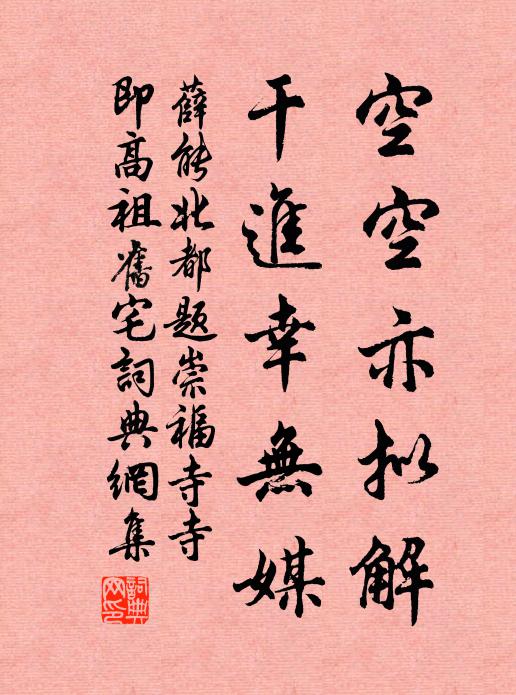 空空亦拟解
干進幸無媒
薛能北都題崇福寺寺
即高祖舊宅詞典網集
詞典網印